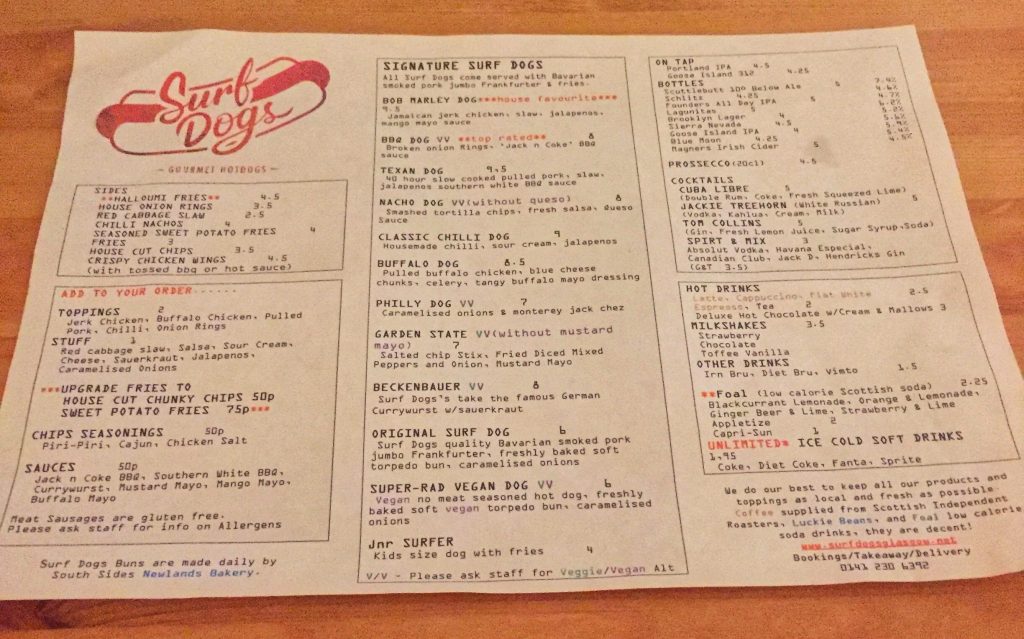 Surf
Dogs
- GOURMET HOTDOGS -
SIDES
**HALLOUMI FRIES** 4.5
HOUSE ONION RINGS 3.5
RED CABBAGE SLAW 2.5
CHILLI NACHOS 4
SEASONED SWEET POTATO FRIES 4
FRIES 3
HOUSE CUT CHIPS 3.5
CRISPY CHICKEN WINGS 4.5
(with tossed bbq or hot sauce)
ADD TO YOUR ORDER......
TOPPINGS 2
Jerk Chicken, Buffalo Chicken, Pulled
Pork, Chilli, Onion Rings
STUFF 1
Red cabbage slaw, Salsa, Sour Cream,
Cheese, Sauerkraut, Jalapenos,
Caramelised Onions
***UPGRADE FRIES TO
HOUSE CUT CHUNKY CHIPS 50p
SWEET POTATO FRIES 75p***
CHIPS SEASONINGS 50p
Piri-Piri, Cajun, Chicken Salt
SAUCES 50p
Jack n Coke BBQ, Southern White BBQ,
Currywurst, Mustard Mayo, Mango Mayo,
Buffalo Mayo
Meat Sausages are gluten free.
Please ask staff for info on Allergens
Surf Dogs Buns are made daily by
South Sides Newlands Bakery.
SIGNATURE SURF DOGS
All Surf Dogs come served with Bavarian
smoked pork jumbo Frankfurter & fries.
BOB MARLEY DOG***house favourite***
9.5
Jamaican jerk chicken, slaw, jalapenos,
mango mayo sauce
BBQ DOG VV **top rated** 8
Broken onion Rings, 'Jack n Coke' BBQ
sauce
TEXAN DOG 9.5
40 hour slow cooked pulled pork, slaw,
jalapenos southern white BBQ sauce
NACHO DOG VV(without queso) 8
Smashed tortilla chips, fresh salsa, Queso
Sauce
CLASSIC CHILLI DOG 9
Housemade chilli, sour cream, jalapenos
BUFFALO DOG 8.5
Pulled buffalo chicken, blue cheese
chunks, celery, tangy buffalo mayo dressing
PHILLY DOG VV 7
Caramelised onions & monterey jack chez
GARDEN STATE VV(without mustard
mayo) 7
Salted chip Stix, Fried Diced Mixed
Peppers and Onion, Mustard Mayo
BECKENBAUER VV 8
Surf Dogs's take the famous German
Currywurst w/sauerkraut
ORIGINAL SURF DOG 6
Surf Dogs quality Bavarian smoked pork
jumbo Frankfurter, freshly baked soft
torpedo bun, caramelised onions
SUPER-RAD VEGAN DOG VV 6
Vegan no meat seasoned hot dog, freshly
baked soft vegan torpedo bun, caramelised
onions
Jnr SURFER
Kids size dog with fries 4
V/V - Please ask staff for Veggie/Vegan Alt
ON TAP
Portland IPA 4.5
Goose Island 312 4.25
BOTTLES
Scuttlebutt 10° Below Ale 5 7.4%
Schlitz 4.25 4.6%
Founders All Day IPA 5 4.7%
Lagunitas 5 6.2%
Brooklyn Lager 4
Sierra Nevada 4.5 5.6%
Goose Island IPA 4 5.9%
Blue Moon 4.25 5.4%
Magners Irish Cider 5 4.5%
PROSSECCO(20cl) 4.5
COCKTAILS
CUBA LIBRE 5
(Double Rum, Coke, Fresh Squeezed Lime)
JACKIE TREEHORN (White Russian) 5
(Vodka, Kahlua, Cream, Milk)
TOM COLLINS 5
(Gin, Fresh Lemon Juice, Sugar Syrup,Soda)
SPIRT & MIX 3
Absolut Vodka, Havana Especial,
Canadian Club, Jack D, Hendricks Gin
(G&T 3.5)
HOT DRINKS
Latte, Cappuccino, Flat White 2.5
Espresso, Tea 2
Deluxe Hot Chocolate w/Cream & Mallows 3
MILKSHAKES 3.5
Strawberry
Chocolate
Toffee Vanilla
OTHER DRINKS
Irn Bru, Diet Bru, Vimto 1.5
**Foal (low calorie Scottish soda) 2.25
Blackcurrant Lemonade, Orange & Lemonade,
Ginger Beer & Lime, Strawberry & Lime
Appletize 2
Capri-Sun 1
UNLIMITED* ICE COLD SOFT DRINKS
1.95
Coke, Diet Coke, Fanta, Sprite
We do our best to keep all our products and
toppings as local and fresh as possible.
Coffee supplied from Scottish Independent
Roasters, Luckie Beans, and Foal low calorie
soda drinks, they are decent!
www.surfdogsglasgow.net
Bookings/Takeaway/Delivery
0141 230 6392